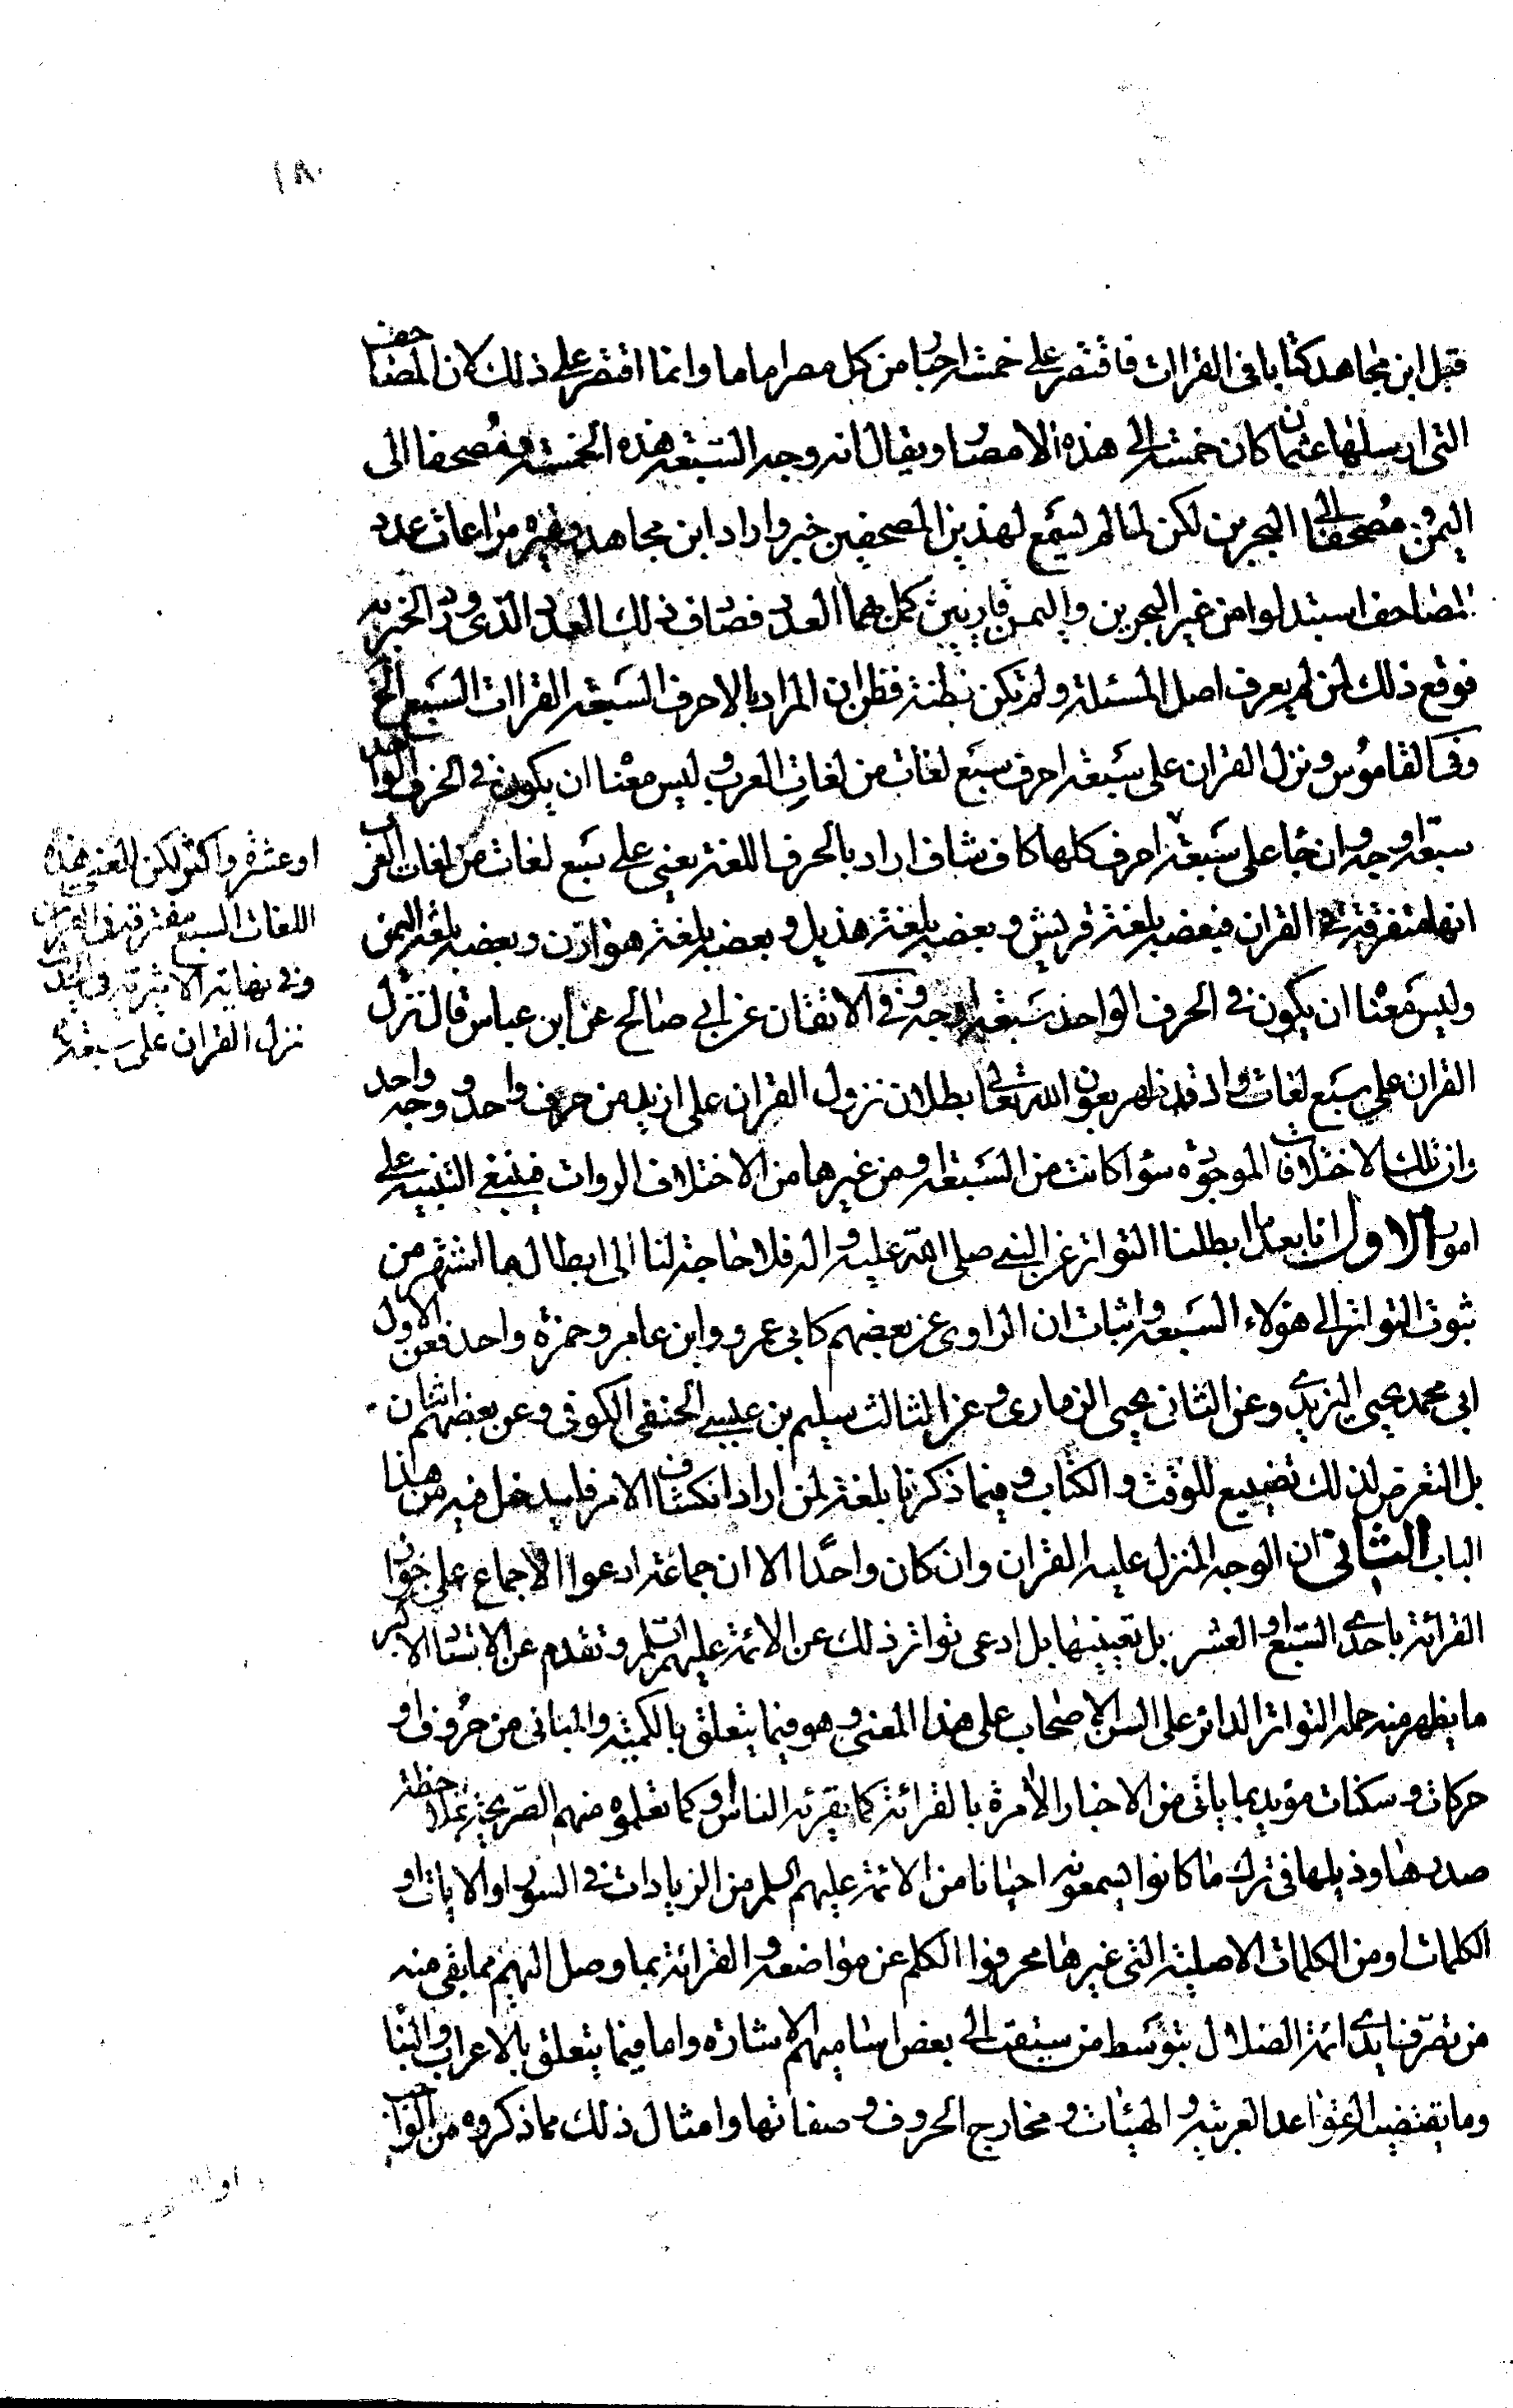 ١٨٠
قبل ابن مجاهد كتابا فى القراات فاقتصر على خمسة اختار من كل مصر اماما وانما اقتصر على ذلك لان المصاحف
التى ارسلها عثمان كان خمسة الى هذه الامصار ويقال انه وجه السبعة هذه الخمسة ومصحفا الى
اليمن ومصحفا الى البحرين لكن لما لم يسمع لهذين المصحفين خبر واراد ابن مجاهد وغيره مراعات عدد
المصاحف استبدلوا من غير البحرين واليمن قاريين كمل بهما العدد فصادف ذلك العدد الذى ورد الخبر به
فوقع ذلك لمن لم يعرف اصل المسئلة ولم تكن فطنة فظن ان المراد بالاحرف السبعة القراات السبع الخ
وفى القاموس ونزل القران على سبعة احرف سبع لغات من لغات العرب وليس معناه ان يكون فى الحرف الواحد
سبعة اوجه وان جا على سبعة احرف كلها كاف شاف اراد بالحرف اللغة يعنى على سبع لغات من لغات العرب
انها متفرقة فى القران فبعضه بلغة قريش وبعضه بلغة هذيل وبعضه بلغة هوازن وبعضه بلغة اليمن
وليس معناه ان يكون فى الحرف الواحد سبعة اوجه وفى الاتقان عن ابى صالح عن ابن عباس قال نزل
القران على سبع لغات واذ قد ظهر بعون الله تعالى بطلان نزول القران على ازيد من حرف واحد ووجه واحد
وان تلك الاختلافات الموجوده سوا كانت من السبعة او من غيرها من الاختلاف الروات فينبغى التنبيه على
امور الاول انا بعد ما ابطلنا التواتر عن النبى صلى الله عليه واله فلا حاجة لنا الى ابطال ما اشتهر من
ثبوت التواتر الى هؤلاء السبعة واثبات ان الراوى عن بعضهم كابى عمرو وابن عامر وحمزه واحد فعن الاول
ابى محمد يحيى اليزيدى وعن الثانى يحيى الزمارى وعن الثالث سليم بن عيسى الحنفى الكوفى وعن بعضهم اثنان
بل التعرض لذلك تضييع للوقت والكتاب وفيما ذكرنا بلغة لمن اراد انكشاف الامر فليدخل فيه من هذا
الباب الثانى ان الوجه المنزل عليه القران وان كان واحدا الا ان جماعة ادعوا الاجماع على جواز
القرائة باحدى السبع او العشر بل تعيينها بل ادعى تواتر ذلك عن الائمة عليهم السلم وتقدم عن الاستاد الاكبر
ما يظهر منه حمله التواتر الدائر على السن الاصحاب على هذا المعنى وهو فيما يتعلق بالكمية والمبانى من حروف او
حركات وسكنات مؤيد بما ياتى من الاخبار الآمرة بالقرائة كما يقرئه الناس وكما تعلموه منهم الصريحة بملاحظة
صدرها وذيلها فى ترك ما كانوا يسمعونه احيانا من الائمة عليهم السلم من الزيادات فى السور او الايات او
الكلمات او من الكلمات الاصلية التى غيرها محرفوا الكلم عن مواضعه والقرائة بما وصل اليهم مما بقى منه
من تصرف ايدى ائمة الضلال بتوسط من سبقت الى بعض اساميهم الاشاره واما فيما يتعلق بالاعراب والبنا
وما يقتضيه القواعد العربية والهيئات ومخارج الحروف وصفاتها وامثال ذلك مما ذكروه من
او عشرة واكثر لكن المعنى هذه
اللغات السبع مفترقة فى القران
وفى نهاية الاثيرية فى الحديث
نزل القران على سبعة